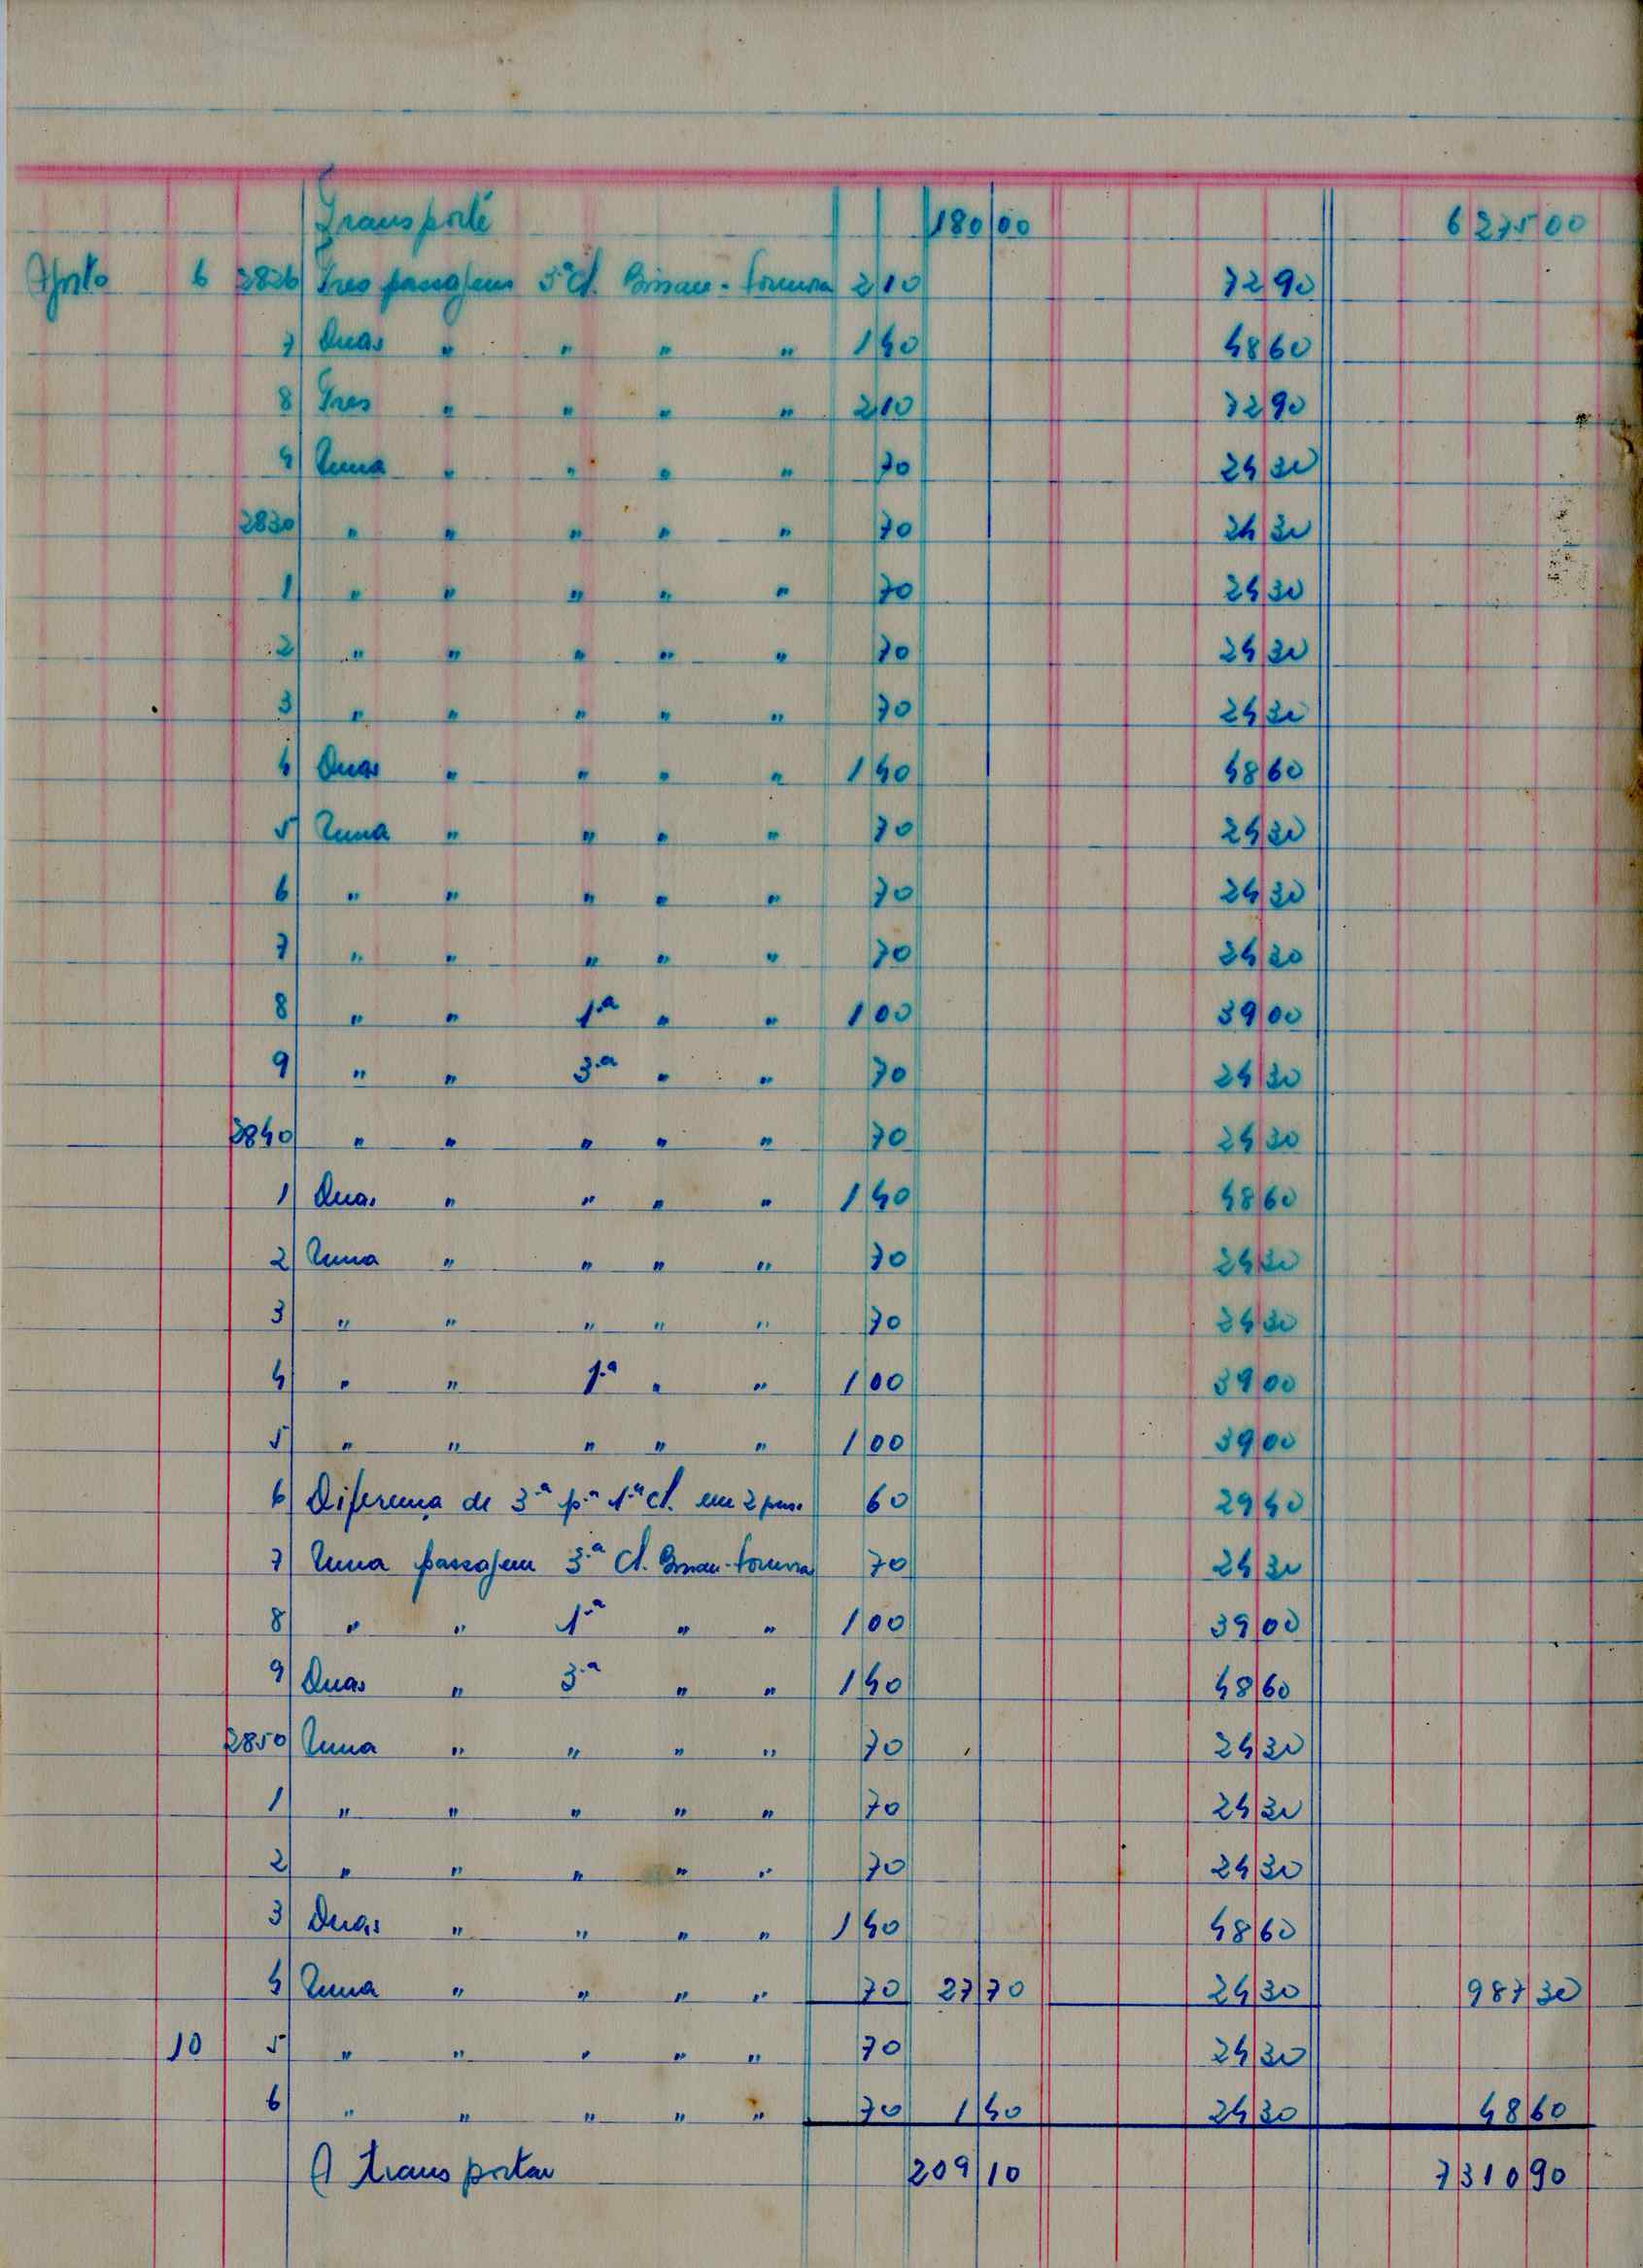 Transporte 180 00 6 275 00
Agosto 6 2826 Tres passagens 3ª Cl. Bissau - Formosa 2 10 72 90
7 Duas " " " " 1 40 48 60
8 Tres " " " " 2 10 72 90
9 Uma " " " " 70 24 30
2830 " " " " " 70 24 30
1 " " " " " 70 24 30
2 " " " " " 70 24 30
3 " " " " " 70 24 30
4 Duas " " " " 1 40 48 60
5 Uma " " " " 70 24 30
6 " " " " " 70 24 30
7 " " " " " 70 24 30
8 " " 1ª " " 1 00 39 00
9 " " 3ª " " 70 24 30
2840 " " " " " 70 24 30
1 Duas " " " " 1 40 48 60
2 Uma " " " " 70 24 30
3 " " " " " 70 24 30
4 " " 1ª " " 1 00 39 00
5 " " " " " 1 00 39 00
6 Diferença de 3ª p.ª 1ª cl. em 2 pass. 60 29 40
7 Uma passagem 3ª Cl. Bissau - Formosa 70 24 30
8 " " 1ª " " 1 00 39 00
9 Duas " 3ª " " 1 40 48 60
2850 Uma " " " " 70 24 30
1 " " " " " 70 24 30
2 " " " " " 70 24 30
3 Duas " " " " 1 40 48 60
4 Uma " " " " 70 27 70 24 30 987 30
10 5 " " " " " 70 24 30
6 " " " " " 70 1 40 24 30 48 60
A transportar 209 10 7 310 90